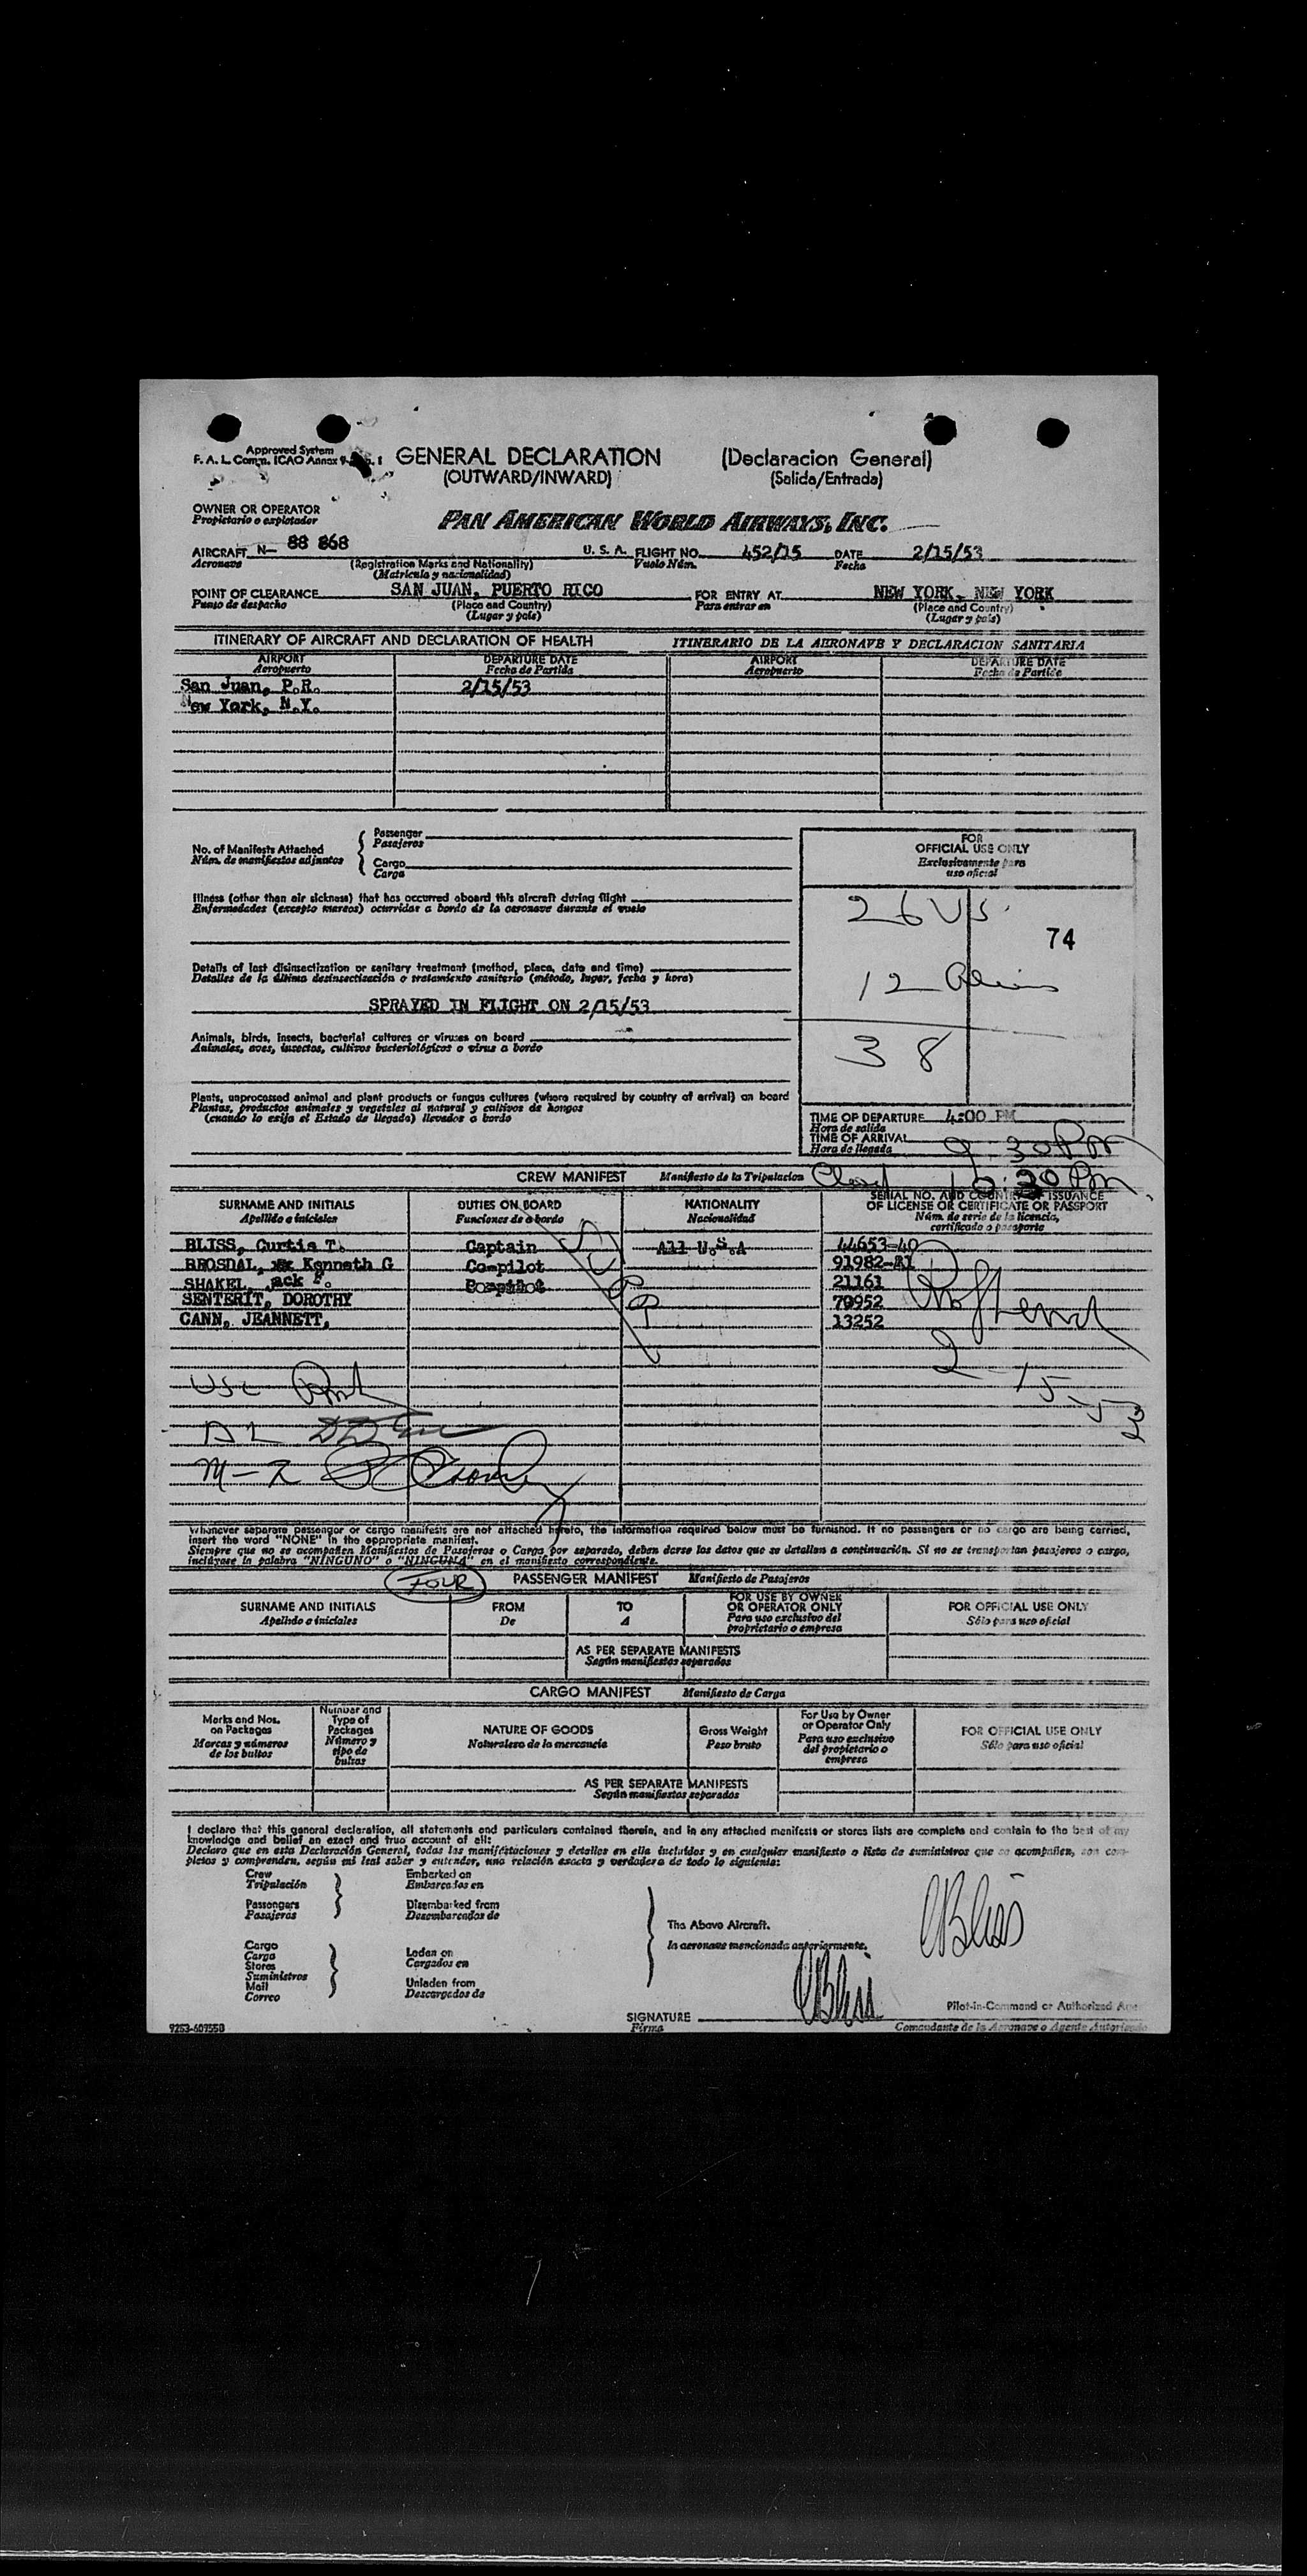 Approved System
F. A. L. Comm. ICAO Annex 9
GENERAL DECLARATION (Declaracion General)
(OUTWARD/INWARD) (Salida/Entrada)
OWNER OR OPERATOR
Propietario o explotador
PAN AMERICAN WORLD AIRWAYS, INC.
AIRCRAFT N- 88 868 U. S. A. FLIGHT NO. 452/15 DATE 2/15/53
Aeronave (Registration Marks and Nationality) Vuelo Núm. Fecha
(Matricula y nacionalidad)
POINT OF CLEARANCE SAN JUAN, PUERTO RICO FOR ENTRY AT NEW YORK, NEW YORK
Punto de despacho (Place and Country) Para entrar en (Place and Country)
(Lugar y país) (Lugar y país)
ITINERARY OF AIRCRAFT AND DECLARATION OF HEALTH ITINERARIO DE LA AERONAVE Y DECLARACION SANITARIA
AIRPORT DEPARTURE DATE AIRPORT DEPARTURE DATE
Aeropuerto Fecha de Partida Aeropuerto Fecha de Partida
San Juan, P.R. 2/15/53
New York, N.Y.
No. of Manifests Attached
Núm. de manifiestos adjuntos
Passenger
Pasajeros
Cargo
Carga
FOR
OFFICIAL USE ONLY
Exclusivamente para
uso oficial
Illness (other than air sickness) that has occurred aboard this aircraft during flight
Enfermedades (excepto mareos) ocurridas a bordo de la aeronave durante el vuelo
26 US.
74
Details of last disinsectization or sanitary treatment (method, place, date and time)
Detalles de la última desinsectización o tratamiento sanitario (método, lugar, fecha y hora)
12 Aliens
SPRAYED IN FLIGHT ON 2/15/53
Animals, birds, insects, bacterial cultures or viruses on board
Animales, aves, insectos, cultivos bacteriológicos o virus a bordo
38
Plants, unprocessed animal and plant products or fungus cultures (where required by country of arrival) on board
Plantas, productos animales y vegetales al natural y cultivos de hongos
(cuando lo exija el Estado de llegada) llevados a bordo
TIME OF DEPARTURE 4:00 PM
Hora de salida
TIME OF ARRIVAL 9:30 PM
Hora de llegada
CREW MANIFEST Manifiesto de la Tripulacion Closed 10:20 Pm.
SURNAME AND INITIALS DUTIES ON BOARD NATIONALITY SERIAL NO. AND COUNTRY OF ISSUANCE
Apellido e iniciales Funciones de a bordo Nacionalidad OF LICENSE OR CERTIFICATE OR PASSPORT
Núm. de serie de la licencia,
certificado o pasaporte
BLISS, Curtis T. Captain All U.S.A 44653-40
BROSDAL, Kenneth G Co-pilot 91982-
SHAKEL, Jack F. Co-pilot 21161
SENTERIT, DOROTHY 70952
CANN, JEANNETT, 13252
2-15-53
USC
AL
M-R
Whenever separate passenger or cargo manifests are not attached hereto, the information required below must be furnished. If no passengers or no cargo are being carried,
insert the word "NONE" in the appropriate manifest.
Siempre que no se acompañen Manifiestos de Pasajeros o Carga por separado, deben darse los datos que se detallan a continuación. Si no se transportan pasajeros o carga,
inclúyase la palabra "NINGUNO" o "NINGUNA" en el manifiesto correspondiente.
FOUR PASSENGER MANIFEST Manifiesto de Pasajeros
SURNAME AND INITIALS FROM TO FOR USE BY OWNER OR OPERATOR ONLY FOR OFFICIAL USE ONLY
Apellido e iniciales De A Para uso exclusivo del proprietario o empresa Sólo para uso oficial
AS PER SEPARATE MANIFESTS
Según manifiestos separados
CARGO MANIFEST Manifiesto de Carga
Marks and Nos. on Packages Number and Type of Packages NATURE OF GOODS Gross Weight For Use by Owner or Operator Only FOR OFFICIAL USE ONLY
Marcas y números de los bultos Número y tipo de bultos Naturaleza de la mercancía Peso bruto Para uso exclusivo del propietario o empresa Sólo para uso oficial
AS PER SEPARATE MANIFESTS
Según manifiestos separados
I declare that this general declaration, all statements and particulars contained therein, and in any attached manifests or stores lists are complete and contain to the best of my
knowledge and belief an exact and true account of all:
Declaro que en esta Declaración General, todas las manifestaciones y detalles en ella incluídos y en cualquier manifiesto o lista de suministros que se acompañen, son com-
pletos y comprenden, según mi leal saber y entender, una relación exacta y verdadera de todo lo siguiente:
Crew Embarked on
Tripulación Embarcados en
Passengers Disembarked from
Pasajeros Desembarcados de
The Above Aircraft.
la aeronave mencionada anteriormente.
CBliss
Cargo
Carga
Stores
Suministros
Mail
Correo
Laden on
Cargados en
Unladen from
Descargados de
SIGNATURE CBliss
Firma
Pilot-in-Command or Authorized
Comandante de la Aeronave o Agente Autorizado
9253-607550